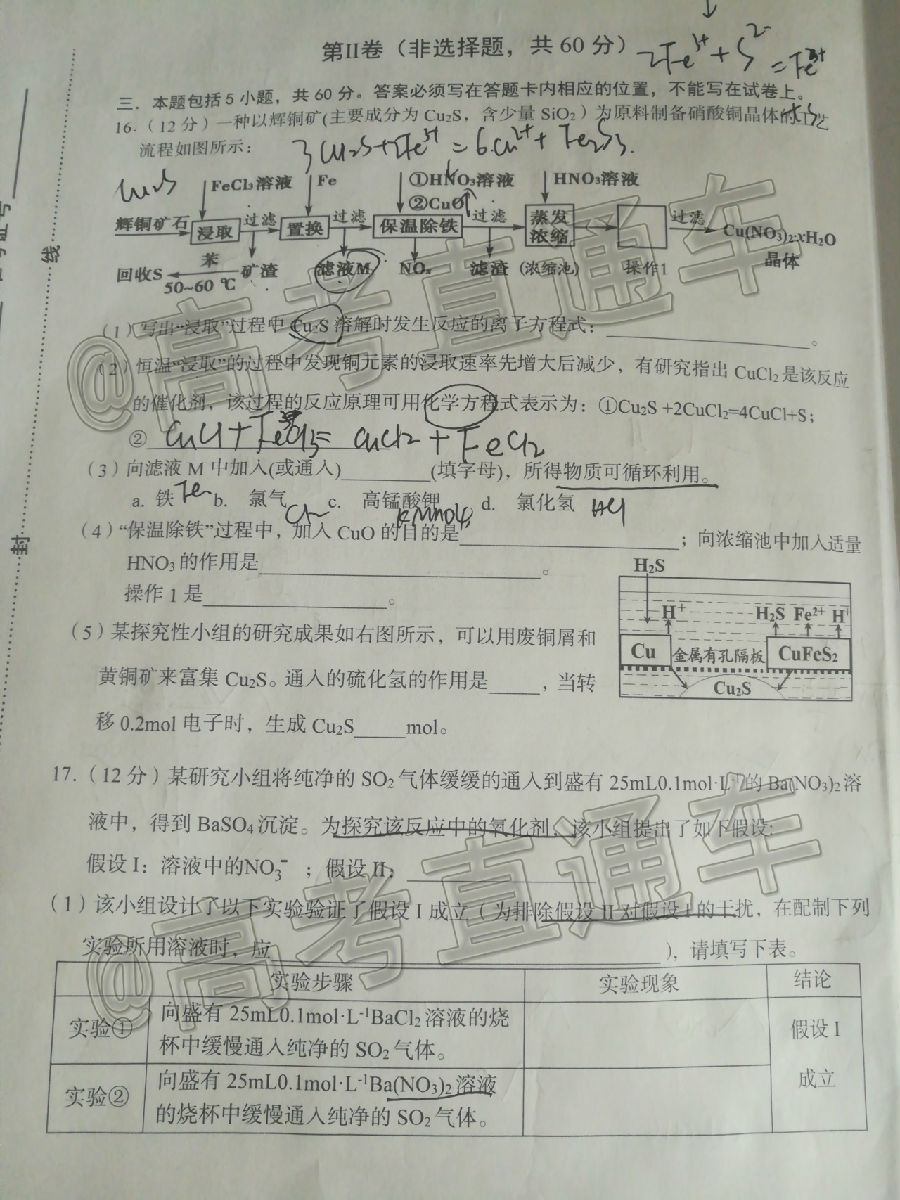 第II卷（非选择题，共60分）
2Fe³⁺+S²⁻
三．本题包括5小题，共60分。答案必须写在答题卡内相应的位置，不能写在试卷上。
16.（12分）一种以辉铜矿(主要成分为Cu₂S，含少量SiO₂）为原料制备硝酸铜晶体的工艺
流程如图所示：
FeCl₃溶液 Fe ①HNO₃溶液 HNO₃溶液
②CuO
辉铜矿石 浸取 过滤 置换 过滤 保温除铁 过滤 蒸发浓缩 过滤 Cu(NO₃)₂·xH₂O
晶体
回收S 苯 矿渣 滤液M NOₓ 滤渣 (浓缩池) 操作1
50~60 ℃
（1）写出“浸取”过程中Cu₂S溶解时发生反应的离子方程式：。
（2）恒温“浸取”的过程中发现铜元素的浸取速率先增大后减少，有研究指出CuCl₂是该反应
的催化剂，该过程的反应原理可用化学方程式表示为：①Cu₂S +2CuCl₂=4CuCl+S；
② CuCl+FeCl₃= CuCl₂+FeCl₂
（3）向滤液M中加入(或通入)________(填字母)，所得物质可循环利用。
a. 铁 b. 氯气 c. 高锰酸钾 d. 氯化氢
Fe Cl₂ KMnO₄ HCl
（4）“保温除铁”过程中，加入CuO的目的是________；向浓缩池中加入适量
HNO₃的作用是________。
操作1是________。
H₂S
H⁺ H₂S Fe²⁺ H⁺
Cu 金属有孔隔板 CuFeS₂
Cu₂S
（5）某探究性小组的研究成果如右图所示，可以用废铜屑和
黄铜矿来富集Cu₂S。通入的硫化氢的作用是____，当转
移0.2mol电子时，生成Cu₂S____mol。
17.（12分）某研究小组将纯净的SO₂气体缓缓的通入到盛有25mL0.1mol·L⁻¹的Ba(NO₃)₂溶
液中，得到BaSO₄沉淀。为探究该反应中的氧化剂，该小组提出了如下假设：
假设I：溶液中的NO₃⁻ ；假设II：________
(1）该小组设计了以下实验验证了假设I成立（为排除假设II对假设I的干扰，在配制下列
实验所用溶液时，应________），请填写下表。
实验步骤 实验现象 结论
实验① 向盛有25mL0.1mol·L⁻¹BaCl₂溶液的烧
杯中缓慢通入纯净的SO₂气体。
假设I
成立
实验② 向盛有25mL0.1mol·L⁻¹Ba(NO₃)₂溶液
的烧杯中缓慢通入纯净的SO₂气体。
线
封
@高考直通车
@高考直通车